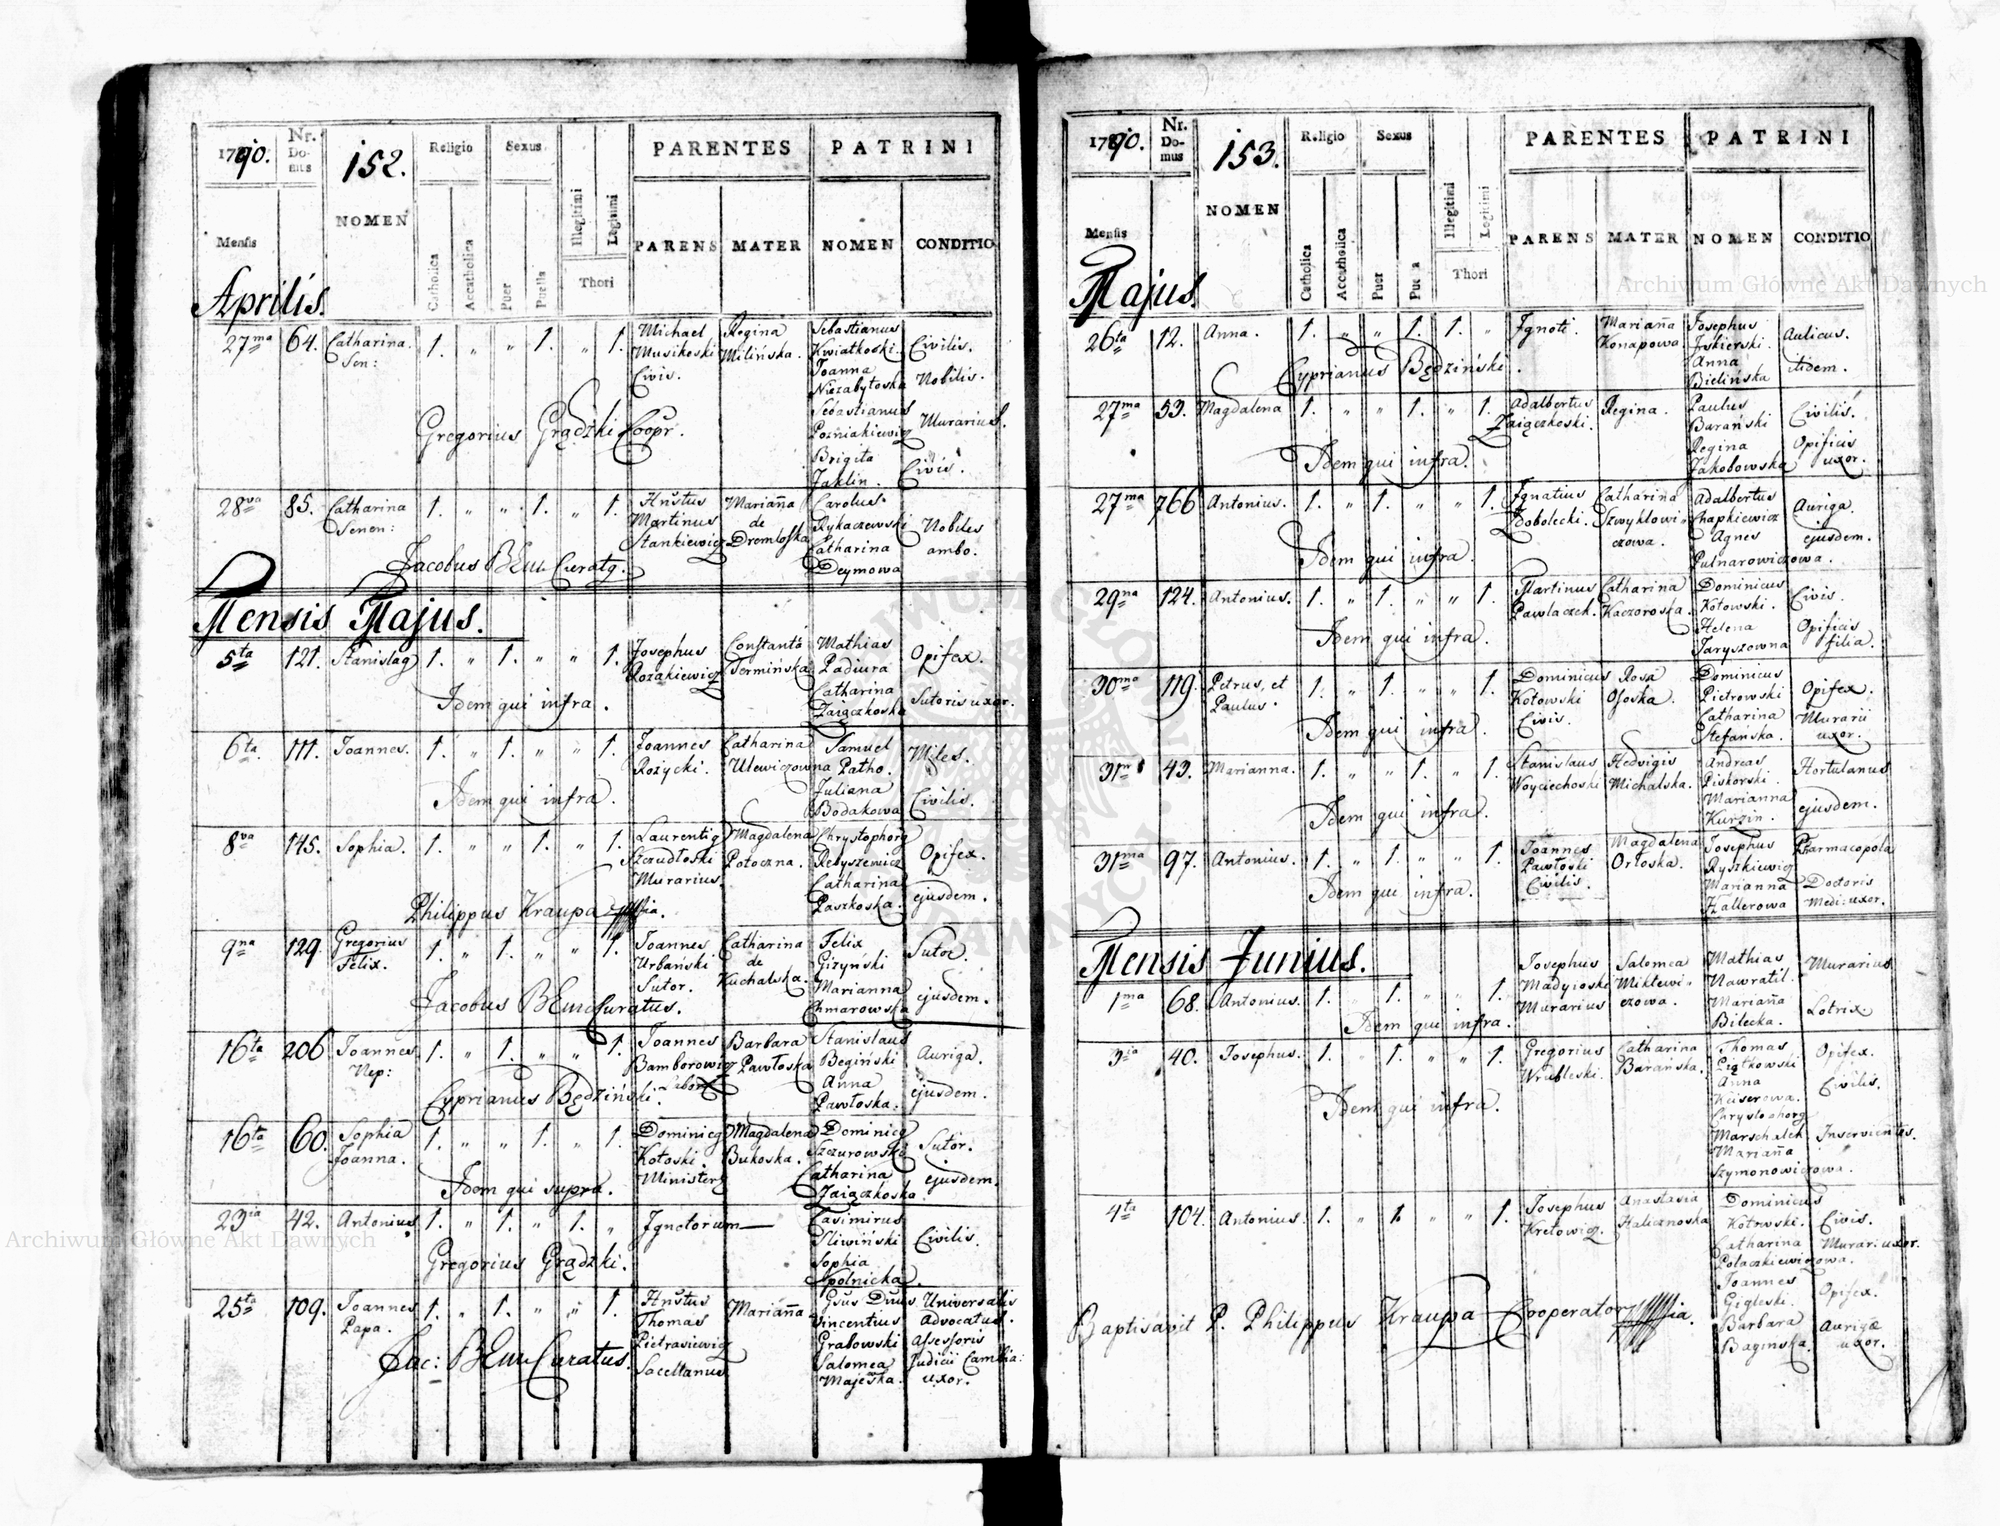 1790.
Nr. Domus
152.
NOMEN
Religio
Sexus
PARENTES
PATRINI
Mensis
Catholica
Accatholica
Puer
Puella
Illegitimi
Legitimi
Thori
PARENS
MATER
NOMEN
CONDITIO
Aprilis.
27ma 64. Catharina. 1. " " 1. " 1. Michael Regina Sebastianus
Sen: Musikoski Milińska. Kwiatkoski. Civilis.
Civis. Joanna
Niezabytoska Nobilis.
Gregorius Grądzki Coopr. Sebastianus
Pozniakiewicz Murarius.
Brigita
Jaklin. Civis.
28va 85. Catharina 1. " " 1. " 1. Hrstus Marianna Carolus
Senen: Martinus de Rykaczewski Nobiles
Stankiewicz Dremloska Catharina ambo.
Jacobus BEm Curatg. Deymowa
Mensis Majus.
5ta 121. Stanislag 1. " 1. " " 1. Josephus Mathias
Rozakiewicz Termińska Padiura Opifex.
Catharina
Idem qui infra. Zaiączkoska Sutoris uxor.
6ta. 111. Joannes. 1. " 1. " " 1. Joannes Catharina Samuel
Rożycki. Ulewiczowna Patho. Miles.
Juliana
Idem qui infra. Bodakowa Civilis.
8va 145. Sophia. 1. " " 1. " 1. Laurentig Magdalena Chrystophorg
Szczudłoski Potoczna. Rebyszewicz Opifex.
Murarius. Catharina
Paszkoska. ejusdem.
Philippus Kraupa
9na 129. Gregorius 1. " 1. " " 1. Joannes Catharina Felix
Felix. Urbański de Gizyński Sutor.
Sutor. Kuchalska. Marianna
Jacobus BEm Curatus. Chmarowska ejusdem.
16ta 206 Joannes 1. " 1. " " 1. Joannes Barbara Stanislaus
Nep: Bamborowicz Pawłoska Begiński Auriga.
Anna
Cyprianus Będziński. Pawłoska. ejusdem.
16ta 60. Sophia 1. " " 1. " 1. Dominicg Magdalena Dominicg
Joanna. Kotoski. Bukoska. Szczurowski Sutor.
Minister Catharina
Idem qui supra. Zaiączkoska. ejusdem.
23ia 42. Antonius 1. " 1. " 1. " Ignotorum Casimirus
Sliwiński Civilis.
Gregorius Grądzki. Sophia
Spolnicka.
25ta 109. Joannes 1. " 1. " " 1. Hrstus Marianna Universalis
Papa. Thomas Vincentius Advocatus.
Pietrasiewicz Grabowski Assessoris
Jac: BEm Curatus. Sacellanus Salomea Judicii Cambia:
uxor.
1790.
Nr. Domus
153.
NOMEN
Religio
Sexus
PARENTES
PATRINI
Mensis
Catholica
Accatholica
Puer
Puella
Illegitimi
Legitimi
Thori
PARENS
MATER
NOMEN
CONDITIO
Majus.
26ta 12. Anna. 1. " " 1. 1. " Ignoti. Marianna Josephus
Konapowa Iskierski. Aulicus.
Cyprianus Będziński. Anna itidem.
Bielińska
27ma 53. Magdalena 1. " " 1. " 1. Adalbertus Regina. Paulus
Zaiączkoski. Barański Civilis.
Regina Opificis
Idem qui infra. Jakobowska uxor.
27ma 766 Antonius. 1. " 1. " " 1. Ignatius Catharina Adalbertus
Dobolecki. Szwykłowiczowa. Chapkiewicz Auriga.
Agnes ejusdem.
Idem qui infra. Pulnarowiczowa.
29na 124. Antonius. 1. " 1. " " 1. Martinus Catharina Dominicus
Pawlaczek. Kaczoroska. Kotowski. Civis.
Helena Opificis
Idem qui infra. Taryszowna filia.
30ma 119. Petrus, et 1. " 1. " " 1. Dominicus Rosa Dominicus
Paulus. Kotowski Ososka. Pietrowski Opifex.
Civis. Catharina Murarii
Idem qui infra. Stefańska. uxor.
31ma 43. Marianna. 1. " " 1. " 1. Stanislaus Hedvigis Andreas Hortulanus
Woyciechoski Michalska. Piskorski.
Marianna ejusdem.
Idem qui infra. Kurzin.
31ma 97. Antonius. 1. " 1. " " 1. Joannes Magdalena Josephus Pharmacopola
Pawłoski Orłoska. Ryszkiewicz
Civilis. Marianna Doctoris
Idem qui infra. Hallerowa Medi: uxor.
Mensis Junius.
1ma 68. Antonius. 1. " 1. " " 1. Josephus Salomea Mathias Murarius
Madyioski Miklewiczowa. Nawratil.
Murarius Marianna Lotrix
Idem qui infra. Bilecka.
3ia 40. Josephus. 1. 1. " " 1. Gregorius Catharina Thomas Opifex.
Wrubleski. Barańska. Piątkowski
Anna Civilis.
Keiserowa.
Idem qui infra. Chrystophorg
Marschalek Inservientes.
Marianna
Szymonowiczowa.
4ta 104. Antonius. 1. " 1. " " 1. Josephus Anastasia Dominicus
Kretowicz. Halicznoska Kotowski. Civis.
Catharina Murari: uxor.
Polaczkiewiczowa.
Joannes Opifex.
Gigleski.
Baptisavit P. Philippus Kraupa Cooperator Barbara Aurigæ
Baginska. uxor.
Archiwum Główne Akt Dawnych
Archiwum Główne Akt Dawnych